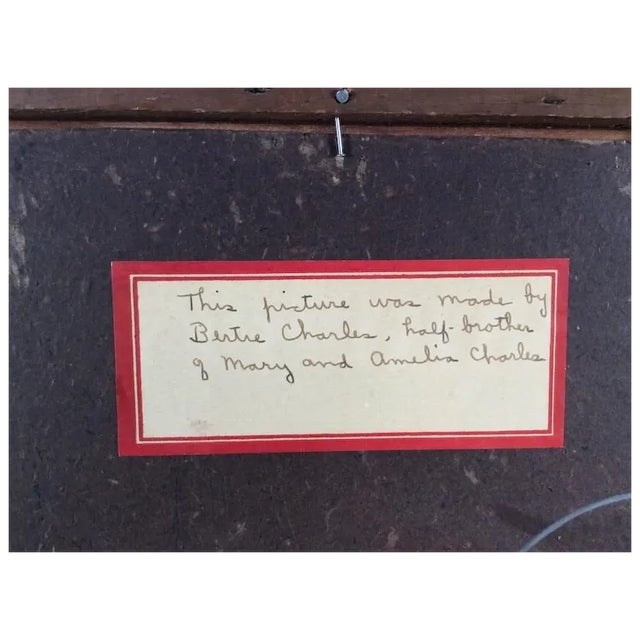 This picture was made by
Bertie Charles, half-brother
of Mary and Amelia Charles